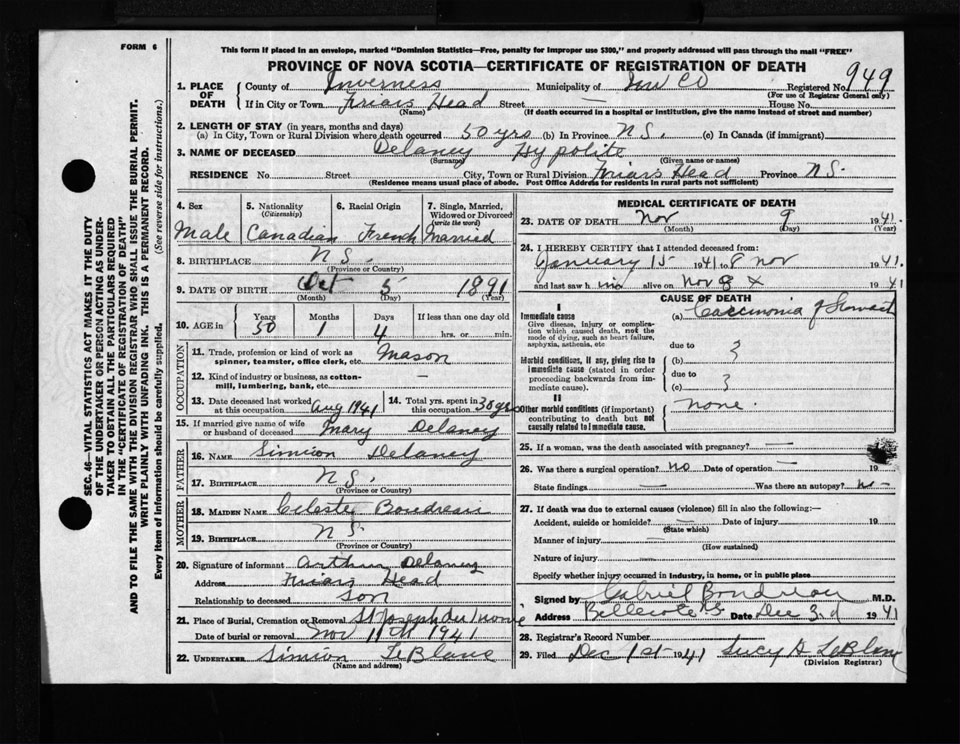 FORM 6
This form if placed in an envelope, marked "Dominion Statistics—Free, penalty for improper use $300," and properly addressed will pass through the mail "FREE"
PROVINCE OF NOVA SCOTIA—CERTIFICATE OF REGISTRATION OF DEATH
SEC. 46—VITAL STATISTICS ACT MAKES IT THE DUTY
OF THE UNDERTAKER OR PERSON ACTING AS UNDER-
TAKER TO OBTAIN ALL THE PARTICULARS REQUIRED
IN THE "CERTIFICATE OF REGISTRATION OF DEATH"
AND TO FILE THE SAME WITH THE DIVISION REGISTRAR WHO SHALL ISSUE THE BURIAL PERMIT.
WRITE PLAINLY WITH UNFADING INK. THIS IS A PERMANENT RECORD.
Every item of information should be carefully supplied. (See reverse side for instructions.)
1. PLACE OF DEATH
County of Inverness Municipality of Inv CO Registered No. 949
(For use of Registrar General only)
If in City or Town Friars Head Street — House No.
(Name) (If death occurred in a hospital or institution, give the name instead of street and number)
2. LENGTH OF STAY (in years, months and days)
(a) In City, Town or Rural Division where death occurred 50 yrs (b) In Province N S. (c) In Canada (if immigrant)
3. NAME OF DECEASED Delaney Hypolite
(Surname) (Given name or names)
RESIDENCE No. Street City, Town or Rural Division Friars Head Province N S.
(Residence means usual place of abode. Post Office Address for residents in rural parts not sufficient)
4. Sex Male
5. Nationality (Citizenship) Canadian
6. Racial Origin French
7. Single, Married, Widowed or Divorced (write the word) Married
8. BIRTHPLACE N S.
(Province or Country)
9. DATE OF BIRTH Oct 5 1891
(Month) (Day) (Year)
10. AGE in Years 50 Months 1 Days 4 If less than one day
hrs. or min.
OCCUPATION
11. Trade, profession or kind of work as spinner, teamster, office clerk, etc. Mason
12. Kind of industry or business, as cotton-mill, lumbering, bank, etc. —
13. Date deceased last worked at this occupation Aug 1941
14. Total yrs. spent in this occupation 30 yrs
15. If married give name of wife or husband of deceased Mary Delaney
FATHER
16. NAME Simion Delaney
17. BIRTHPLACE N S.
(Province or Country)
MOTHER
18. MAIDEN NAME Celeste Boudreau
19. BIRTHPLACE N S
(Province or Country)
20. Signature of informant Arthur Delaney
Address Friars Head
Relationship to deceased Son
21. Place of Burial, Cremation or Removal St Joseph du Moine
Date of burial or removal Nov 11th 1941
22. UNDERTAKER Simion LeBlanc
(Name and address)
MEDICAL CERTIFICATE OF DEATH
23. DATE OF DEATH Nov 9 1941.
(Month) (Day) (Year)
24. I HEREBY CERTIFY that I attended deceased from:
January 15 1941 to 8 nov 1941.
and last saw h im alive on Nov 8 1941
CAUSE OF DEATH
I
Immediate cause
Give disease, injury or complication which caused death, not the mode of dying, such as heart failure, asphyxia, asthenia, etc
(a) Carcinonia of Stomach
due to
Morbid conditions, if any, giving rise to immediate cause (stated in order proceeding backwards from immediate cause).
(b)
due to
(c)
II
Other morbid conditions (if important) contributing to death but not causally related to immediate cause.
none.
25. If a woman, was the death associated with pregnancy? —
26. Was there a surgical operation? no Date of operation — 19
State findings — Was there an autopsy? no
27. If death was due to external causes (violence) fill in also the following:—
Accident, suicide or homicide? — Date of injury 19
(State which)
Manner of injury —
(How sustained)
Nature of injury —
Specify whether injury occurred in industry, in home, or in public place
Signed by Gabriel Boudreau M.D.
Address Belle Cote N.S. Date Dec 3rd 1941
28. Registrar's Record Number
29. Filed Dec 1st 1941 Lucy H LeBlanc
(Division Registrar)